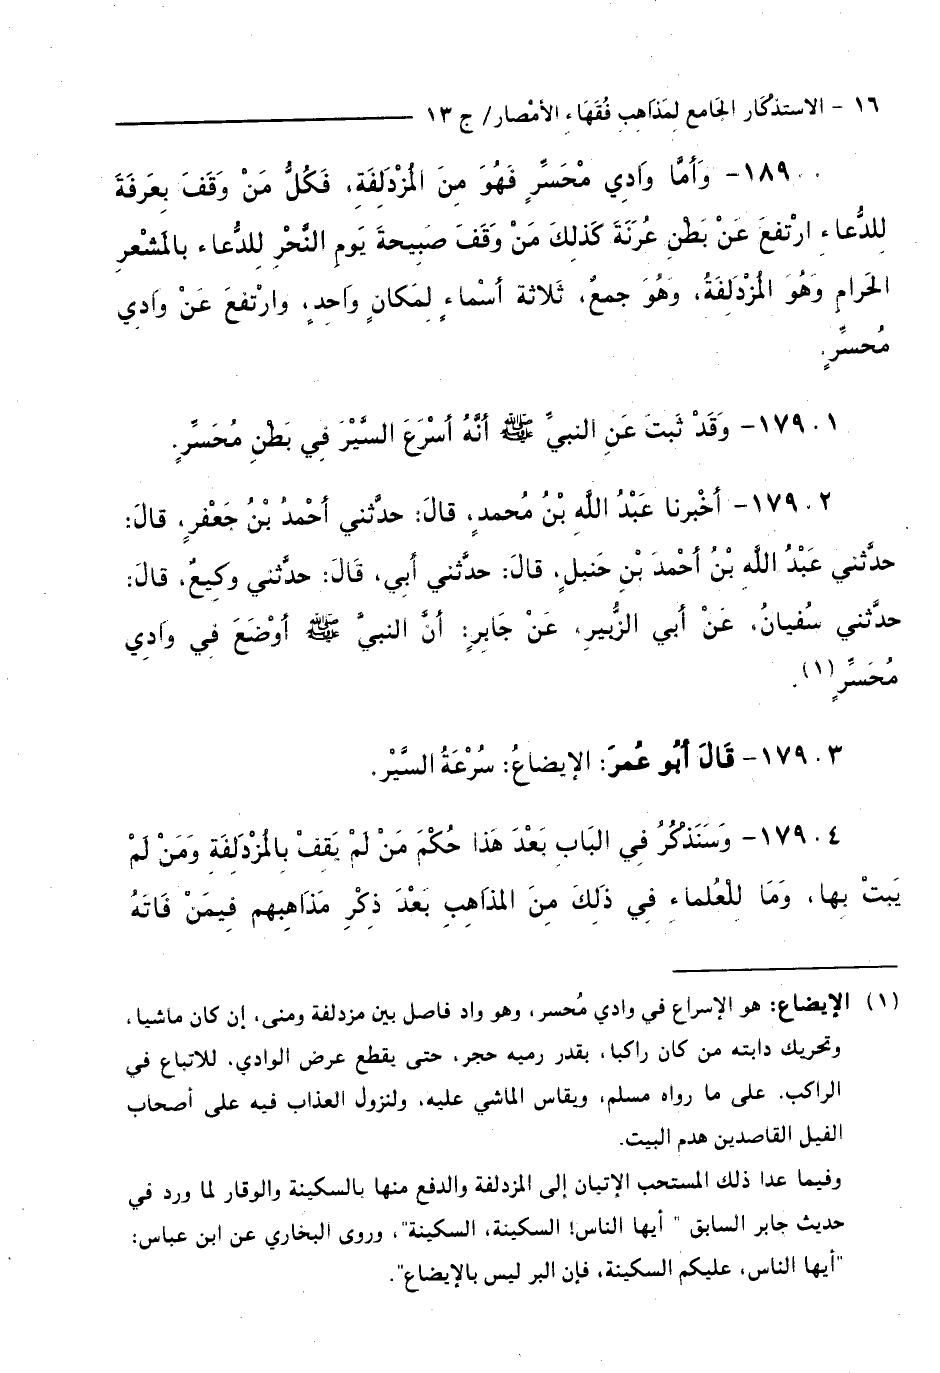 ١٦ - الاستذكار الجامع لمذاهب فُقَهَاءِ الأمْصار/ ج ١٣
١٨٩٠٠- وَأمَّا وَادِي مْحَسرٍّ فَهُوَ مِنَ الْمُزْدَلِفَةِ، فَكُلُّ مَنْ وَقَفَ بِعَرفَةَ
لِلدُّعاءِ ارْتفعَ عَنْ بَطْنِ عُرَنَةَ كَذلِكَ مَنْ وَقَفَ صَبِيحةَ يَومِ النَّحْرِ لِلدُّعاءِ بالمَشْعرِ
الحَرامِ وَهُوَ الْمُزْدَلفَةُ، وَهُوَ جمعٌ، ثَلاثة أسْماءٍ لمَكانٍ وَاحدٍ، وارْتفعَ عَنْ وَادِي
مُحسرٍّ.
١٧٩٠١- وَقَدْ ثَبتَ عَنِ النبيِّ ﷺ أنَّهُ أسْرَعَ السَّيْرَ فِي بَطْنِ مُحَسرٍّ.
١٧٩٠٢- أخْبرنا عَبْدُ اللَّهِ بْنُ مُحمدٍ، قالَ: حدَّثني أحْمدُ بْنُ جَعْفرٍ، قالَ:
حدَّثني عَبْدُ اللَّهِ بْنُ أحْمدَ بْنِ حَنبلٍ، قالَ: حدَّثني أبي، قَالَ: حدَّثني وكيعٌ، قالَ:
حدَّثني سُفيانُ، عَنْ أبي الزُّبيرِ، عَنْ جَابرٍ: أنَّ النبيَّ ﷺ أوْضَعَ فِي وَادِي
مُحَسرٍّ(١).
١٧٩٠٣- قَالَ أبُو عُمرَ: الإيضاعُ: سُرْعَةُ السَّيْرِ.
١٧٩٠٤- وَسَنَذْكُرُ فِي البَابِ بَعْدَ هَذا حُكْمَ مَنْ لَمْ يَقِفْ بالْمُزْدَلِفَةِ وَمَنْ لَمْ
يَبتْ بِها، وَمَا لِلْعُلماءِ فِي ذَلكَ مِنَ المذاهبِ بَعْدَ ذِكْرِ مَذاهبِهم فِيمَنْ فَاتَهُ
(١) الإيضاع: هو الإسراع في وادي مُحسر، وهو واد فاصل بين مزدلفة ومنى، إن كان ماشيا،
وتحريك دابته من كان راكبا، بقدر رميه حجر، حتى يقطع عرض الوادي. للاتباع في
الراكب. على ما رواه مسلم، ويقاس الماشي عليه، ولنزول العذاب فيه على أصحاب
الفيل القاصدين هدم البيت.
وفيما عدا ذلك المستحب الإتيان إلى المزدلفة والدفع منها بالسكينة والوقار لما ورد في
حديث جابر السابق " أيها الناس! السكينة، السكينة"، وروى البخاري عن ابن عباس:
"أيها الناس، عليكم السكينة، فإن البر ليس بالإيضاع".